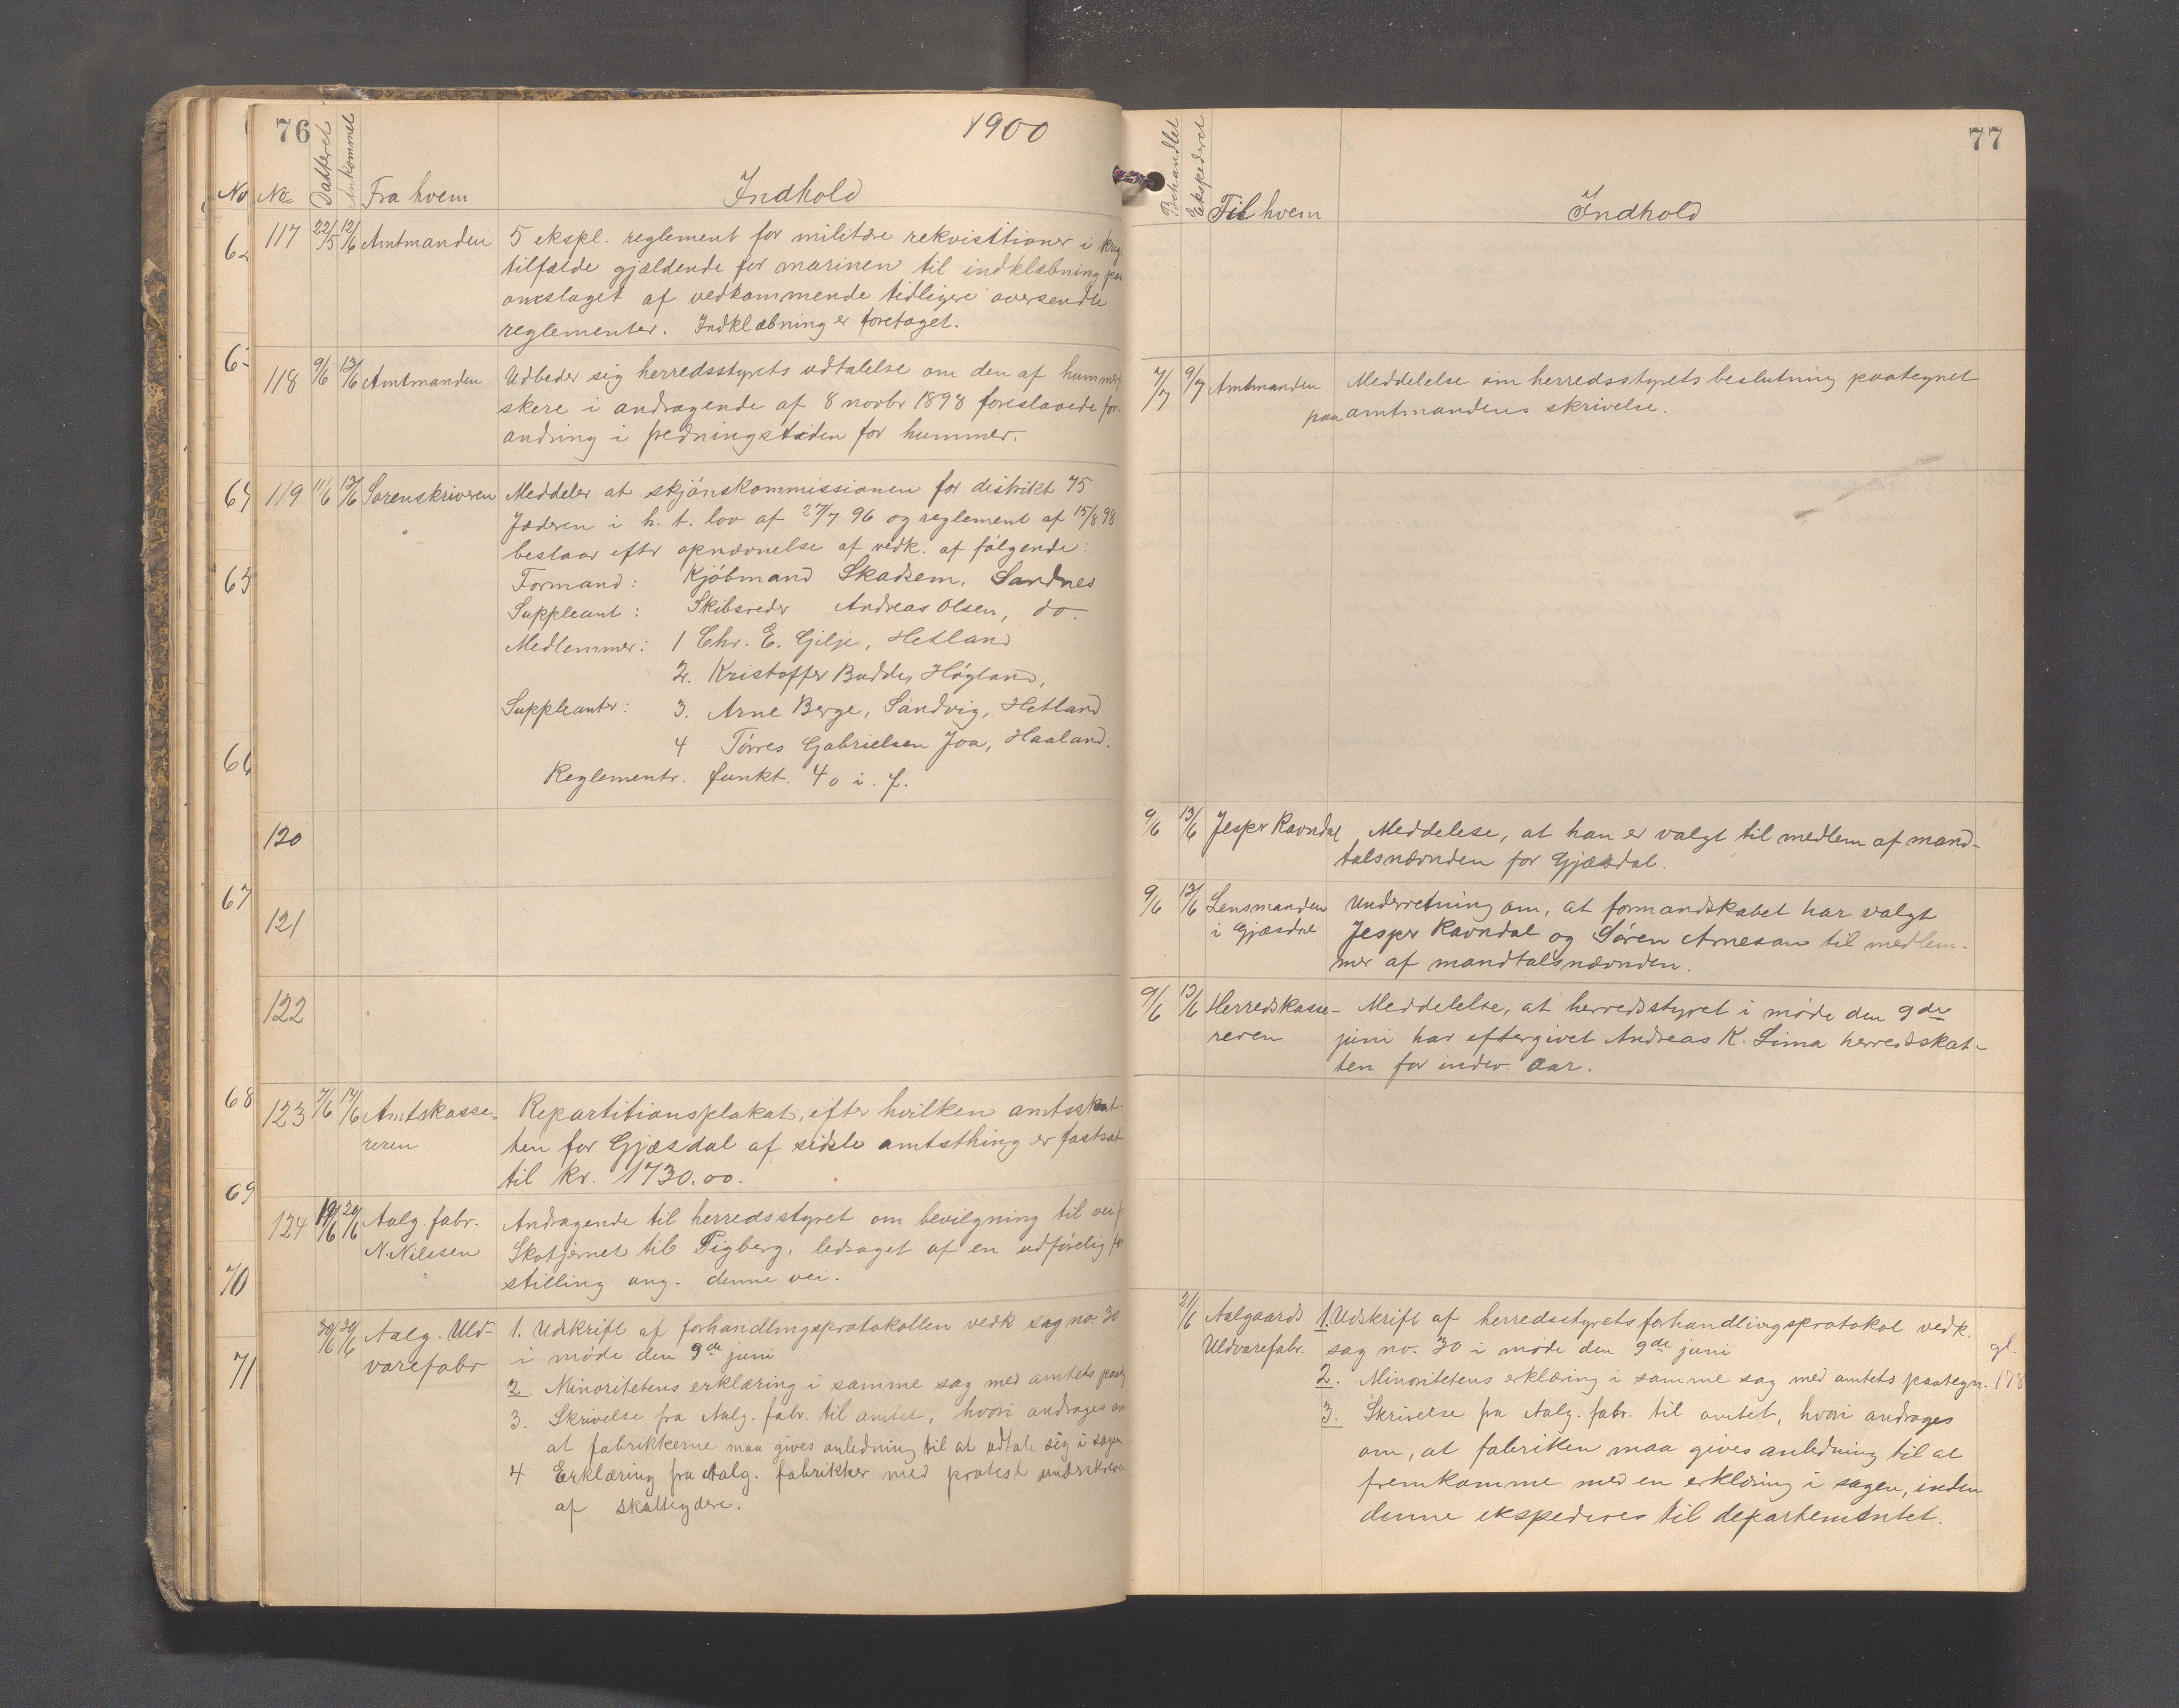 76
1900
No
No
Datteret
Ankommet
Fra hvem
Indhold
62
63
64
65
66
67
68
69
70
71
117 22/5 12/6 Amtmanden 5 ekspl. reglement for militære rekvisitioner i krigs
tilfælde gjældende for marinen til indklæbning paa
omslaget af vedkommende tidligere oversendte
reglementer. Indklæbning er foretaget.
118 9/6 13/6 Amtmanden Udbeder sig herredsstyrets udtalelse om den af hummerfi
skere i andragende af 8 novbr 1898 foreslaaede for-
andring i fredningstiden for hummer.
119 11/6 13/6 Sorenskriveren Meddeler at skjönskommissionen for distrikt 75
Jæderen i h. t. lov af 27/7 96 og reglement af 15/8 98
bestaar eftr opnævnelse af vedk. af fölgende:
Formand: Kjöbmand Skadsem, Sandnes
Suppleant: Skibsreder Andreas Olsen, do.
Medlemmer: 1 Chr. E. Gilje, Hetland
2. Kristoffer Budde, Högland,
Suppleanter: 3. Arne Berge, Sandvig, Hetland
4 Törres Gabrielsen Joa, Haaland.
Reglementr. funkt. 40 i. f.
120
121
122
123 7/6 14/6 Amtskasse- Repartitionsplakat, efter hvilken amtsskat-
reren ten for Gjæsdal af sidste amtsthing er fastsat
til kr. 1730.00.
124 19/6 20/6 Aalg. fabr. Andragende til herredsstyret om bevilgning til vei f
N. Nilssen Skotjernet til Pigberg, ledsaget af en udförelig fre
stilling ang. denne vei.
20/6 20/6 Aalg. Uld- 1. Udskrift af forhandlingsprotokollen vedk sag no. 30
varefabr i möde den 9de juni
2 Minoritetens erklæring i samme sag med amtets paateg
3. Skrivelse fra Aalg. fabr. til amtet, hvori andrages om
at fabrikkerne maa gives anledning til at udtale sig i sagen
4 Erklæring fra Aalg. fabrikker med protest underskreven
af skatteydere.
77
Behandlet
Ekspederet
Til hvem
Indhold
7/7 9/7 Amtmanden Meddelelse om herredsstyrets beslutning paategnet
paa amtmandens skrivelse.
9/6 13/6 Jesper Ravndal Meddelese, at han er valgt til medlem af mand-
talsnævnden for Gjæsdal.
9/6 13/6 Lensmanden Underretning om, at formandskabet har valgt
i Gjæsdal Jesper Ravndal og Sören Arnesan til medlem-
mer af mandtalsnævnden.
9/6 13/6 Herredskasse- Meddelelse, at herredsstyret i möde den 9de
reren juni har eftergivet Andreas K. Lima herredskat-
ten for indev. aar.
21/6 Aalgaards 1. Udskrift af herredsstyrets forhandlingsprotokol vedk.
Uldvarefabr. sag no. 30 i möde den 9de juni
2. Minoritetens erklæring i samme sag med amtets paategn.
3. Skrivelse fra Aalg. fabr. til amtet, hvori andrages
om, at fabriken maa gives anledning til at
fremkomme med en erklæring i sagen, inden
denne ekspederes til departementet.